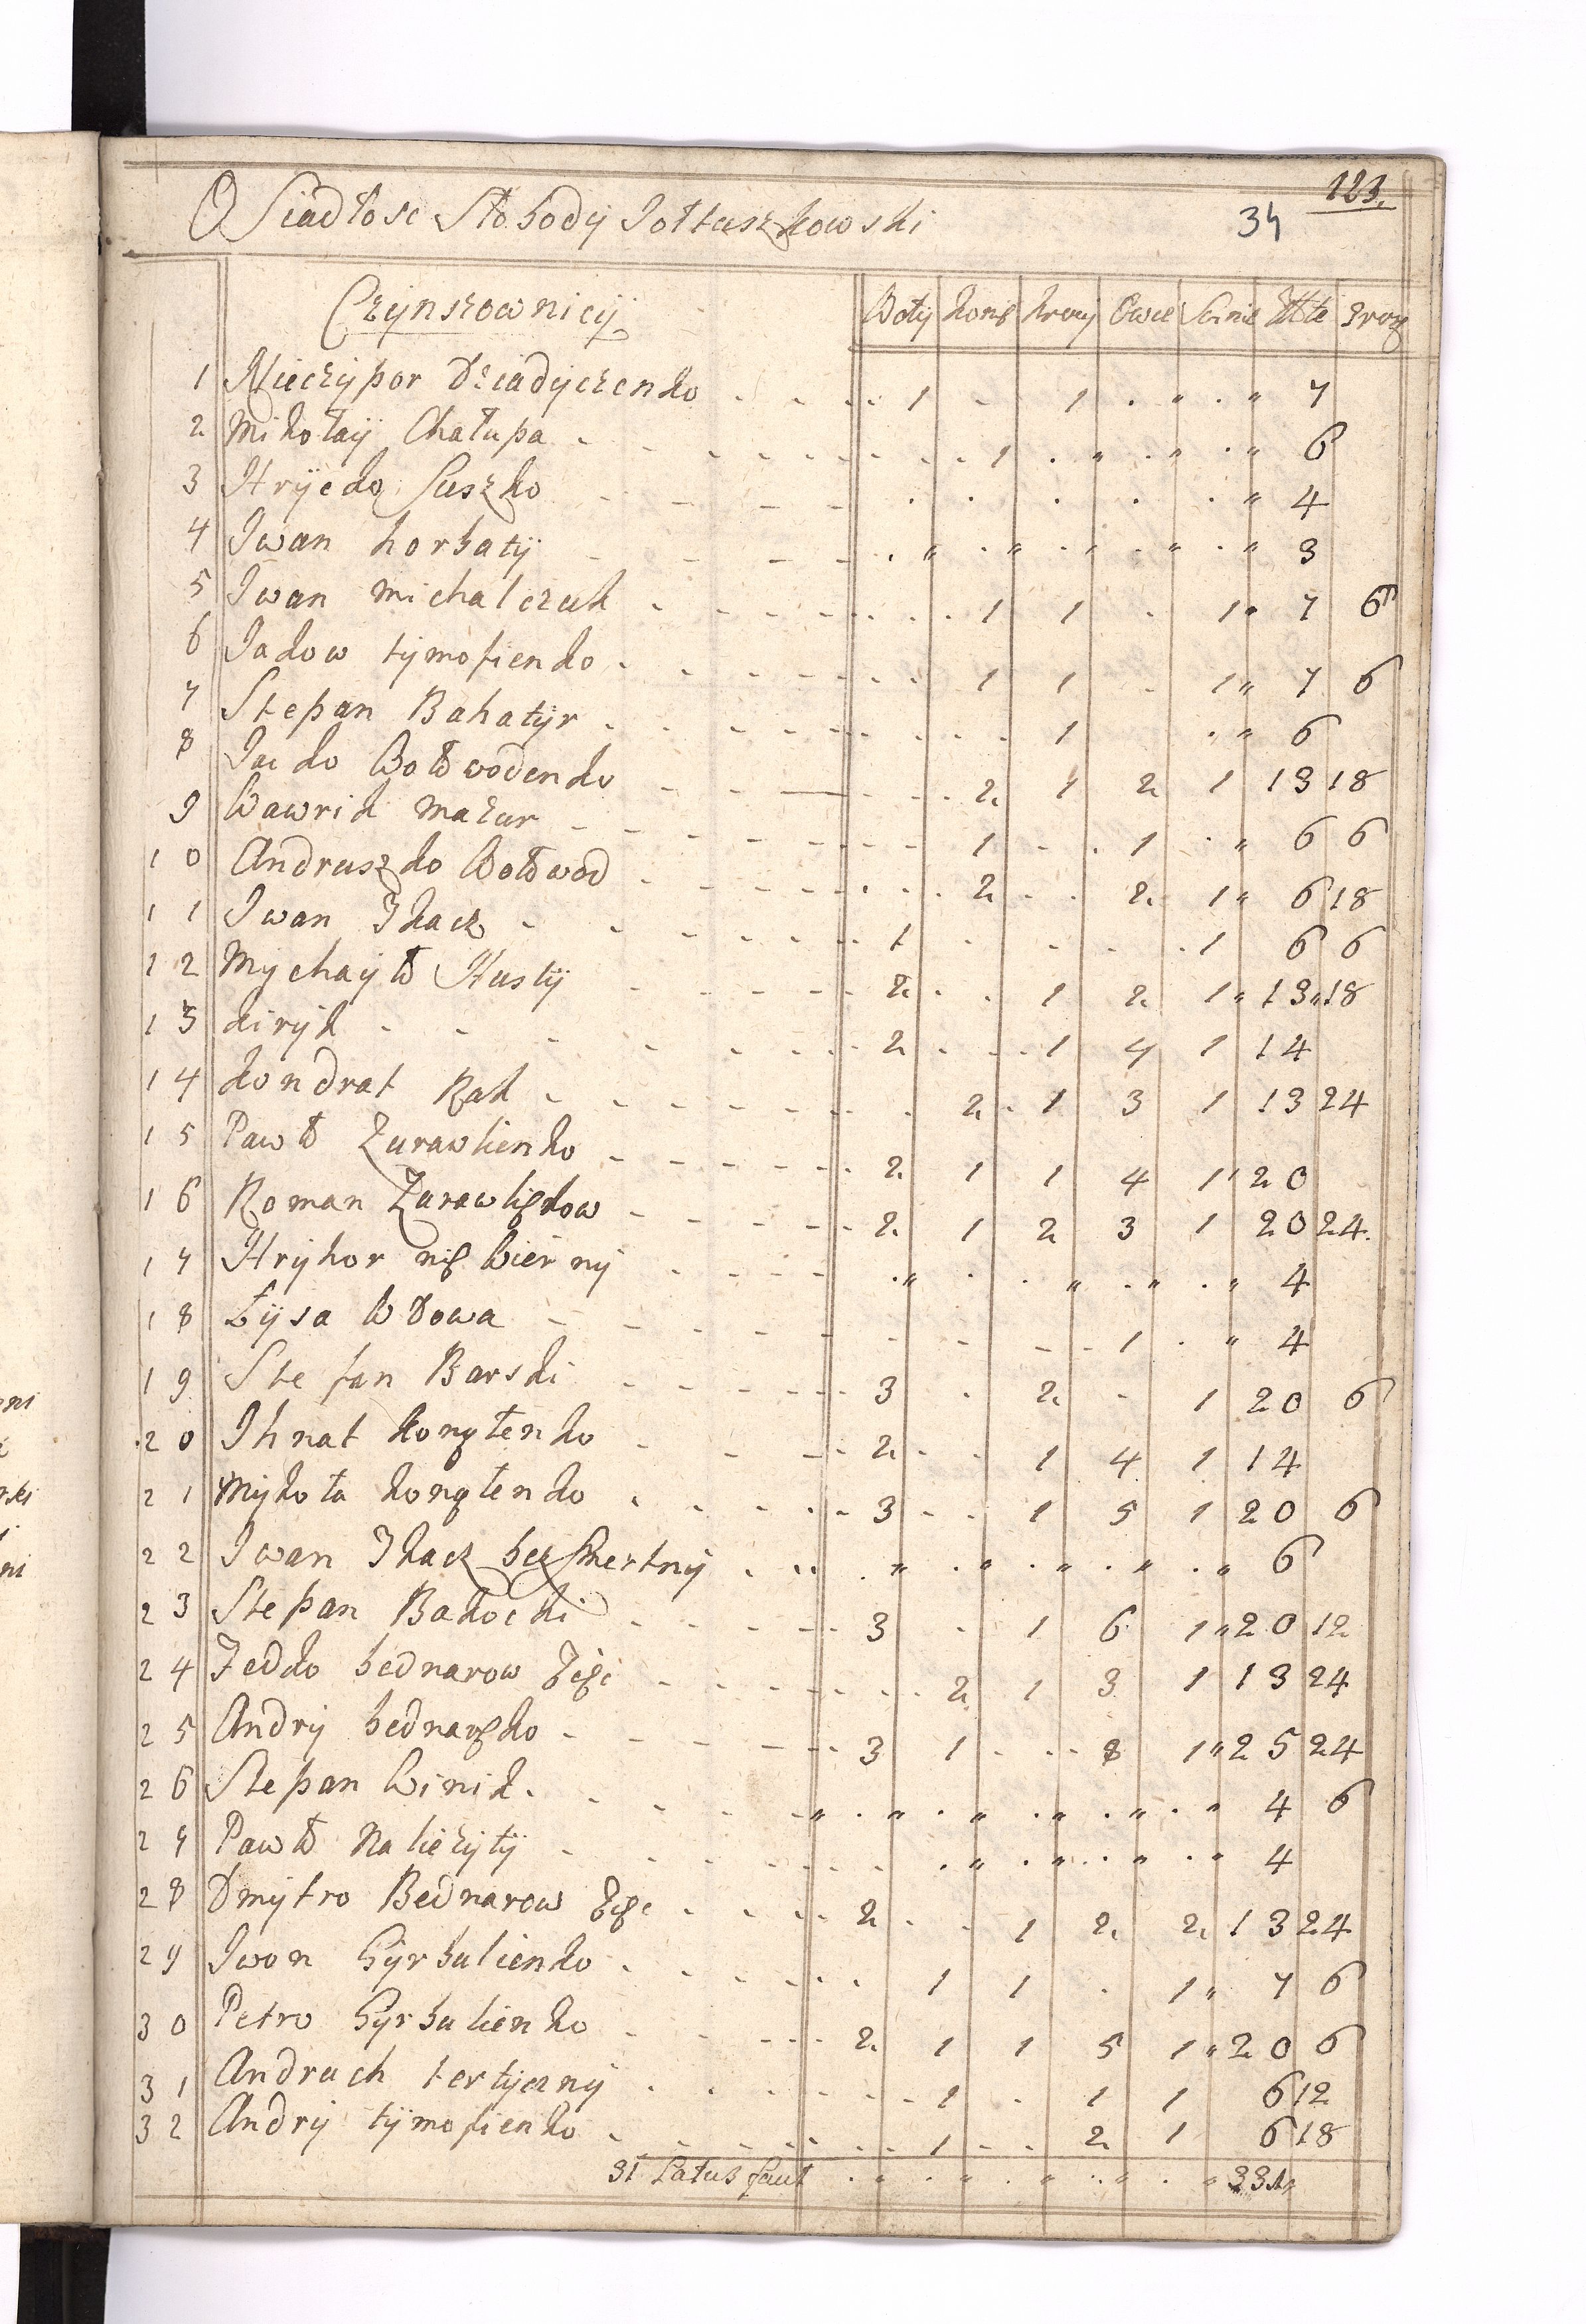 123.
34
OSiadłosc Słobody Jołtuszkowski
Czÿnszownicÿ Wołÿ konie krowÿ Owce Swinie Złłte Grosz
1 Nieczÿpor Dziadÿczenko 1 - 1 . " . " 7
2 Mikołaÿ Chałupa 1 . " . " . " 6
3 Hrÿcko Suszko . . . . . " 4
4 Jwan horbatÿ . " . " . " . " . " 3
5 Jwan michalczuk 1 1 - 1 " 7 6
6 Jakow tÿmofienko 1 1 - 1 " 7 6
7 Stepan Bahatÿr 1 . " 6
8 Jacko Wołowodenko 2 1 2 1 13 18
9 Wawrik mazur 1 - . 1 . " 6 6
10 Andruszko Wołowod 2 - . 2 1 " 6 18
11 Jwan Tkacz 1 - - - . 1 6 6
12 Mÿchaÿło Hustÿ 2 . . 1 2 1 " 13 " 18
13 kirÿk 2 . - 1 4 1 14
14 kondrat Rak 2 . 1 3 1 13 24
15 Pawło Zurawlienko 2 1 1 4 1 " 20
16 Roman Zurawliękow 2 1 2 3 1 20 24.
17 Hrÿhor nie Wiernÿ . " . . " . " . " 4
18 Łÿsa Wdowa - - - 1 . " 4
19 Stefan Barski 3 . 2 - 1 20 6
20 Jhnat konęłenko 2 - - 1 4 1 14
21 Mÿkoła konęłenko 3 - - 1 5 1 20 6
22 Jwan Tkacz bezSmertnÿ . " . " . " . " . " 6
23 Stepan Bakocki 3 - 1 6 1 " 20 12
24 Fedko bednarow Zięc 2 1 3 1 13 24
25 Andrÿ bednaręko 3 1 - - 8 1 " 25 24
26 Stepan Winik " . " . " . " . " . " 4 6
27 Pawło Naliezÿtÿ . " . " . " . " 4
28 Dmÿtro Bednarow Zięc 2 - - 1 2 2 13 24
29 Jwon Hÿrbulienko 1 1 . 1 " 7 6
30 Petro Hÿrbulienko 2 1 1 5 1 " 20 6
31 Andruch tertÿcznÿ 1 . 1 1 6 12
32 Andrÿ tÿmofienko 1 - . 2 1 6 18
31 Latus faut . " . " . " . " . "